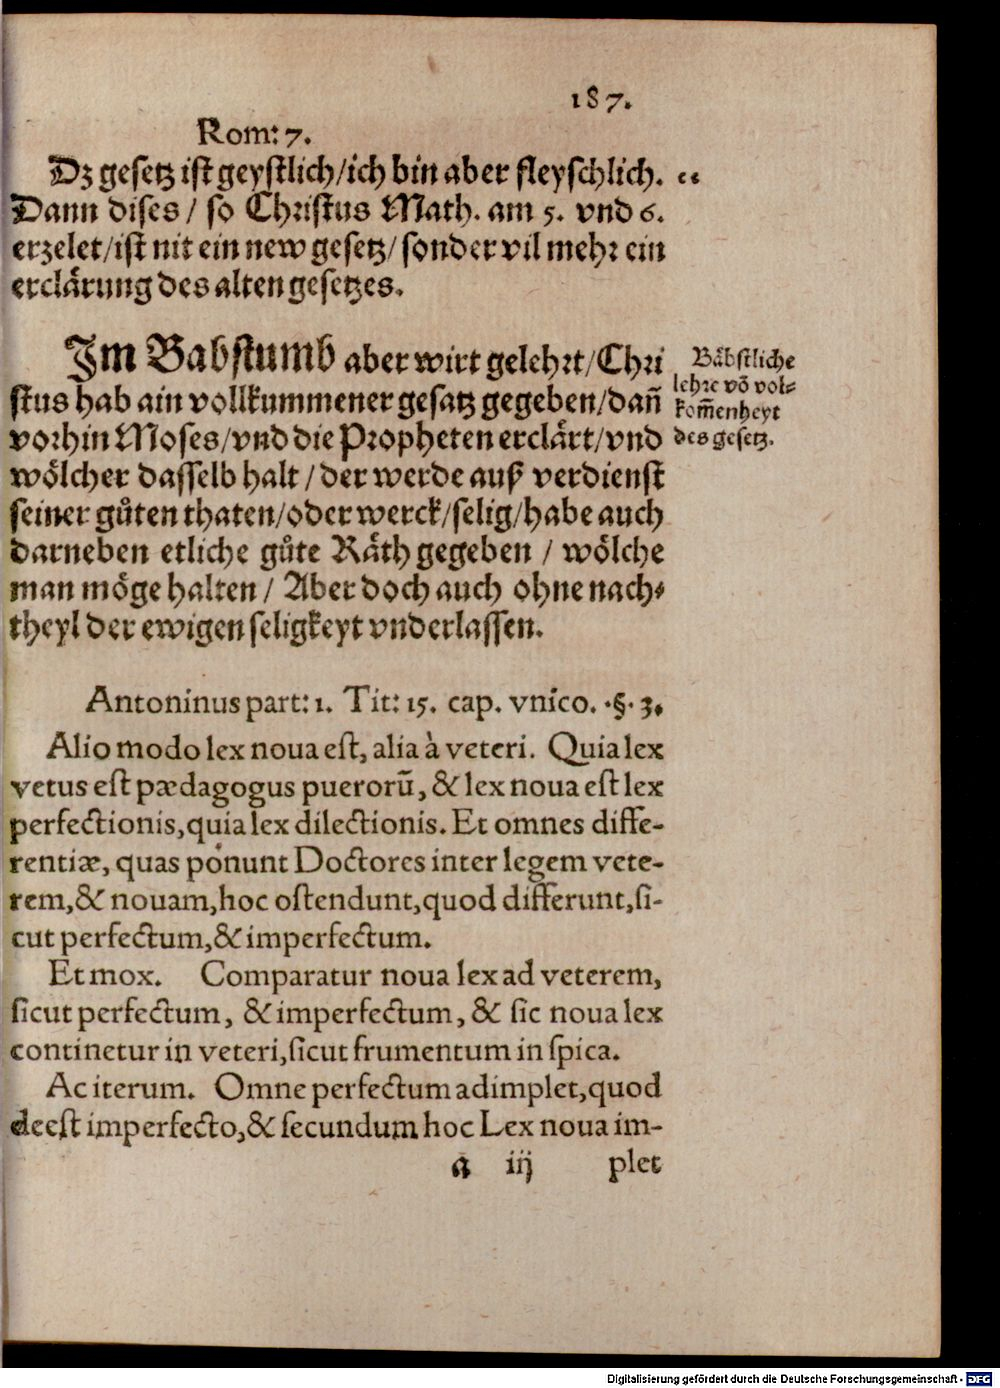 187.
Rom: 7.
Dz gesetz ist geystlich/ich bin aber fleyschlich. “
Dann dises / so Christus Math. am 5. vnd 6.
erzelet/ist nit ein new gesetz/sonder vil mehr ein
erclärung des alten gesetzes.
Im Babstumb aber wirt gelehrt/Chri
stus hab ain vollkummener gesatz gegeben/dañ
vorhin Moses/vnd die Propheten erclärt/vnd
wölcher dasselb halt / der werde auß verdienst
seiner gůten thaten/oder werck/selig/habe auch
darneben etliche gůte Räth gegeben / wölche
man möge halten / Aber doch auch ohne nach⸗
theyl der ewigen seligkeyt vnderlassen.
Bäbstliche
lehre võ vol⸗
kom̃enheyt
des gesetz.
Antoninus part: 1. Tit: 15. cap. vnico. ·§· 3.
Alio modo lex noua est, alia à veteri. Quia lex
vetus est pædagogus puerorũ, & lex noua est lex
perfectionis, quia lex dilectionis. Et omnes diffe-
rentiæ, quas ponunt Doctores inter legem vete-
rem, & nouam, hoc ostendunt, quod differunt, si-
cut perfectum, & imperfectum.
Et mox. Comparatur noua lex ad veterem,
sicut perfectum, & imperfectum, & sic noua lex
continetur in veteri, sicut frumentum in spica.
Ac iterum. Omne perfectum adimplet, quod
deest imperfecto, & secundum hoc Lex noua im-
a iij plet
Digitalisierung gefördert durch die Deutsche Forschungsgemeinschaft - DFG